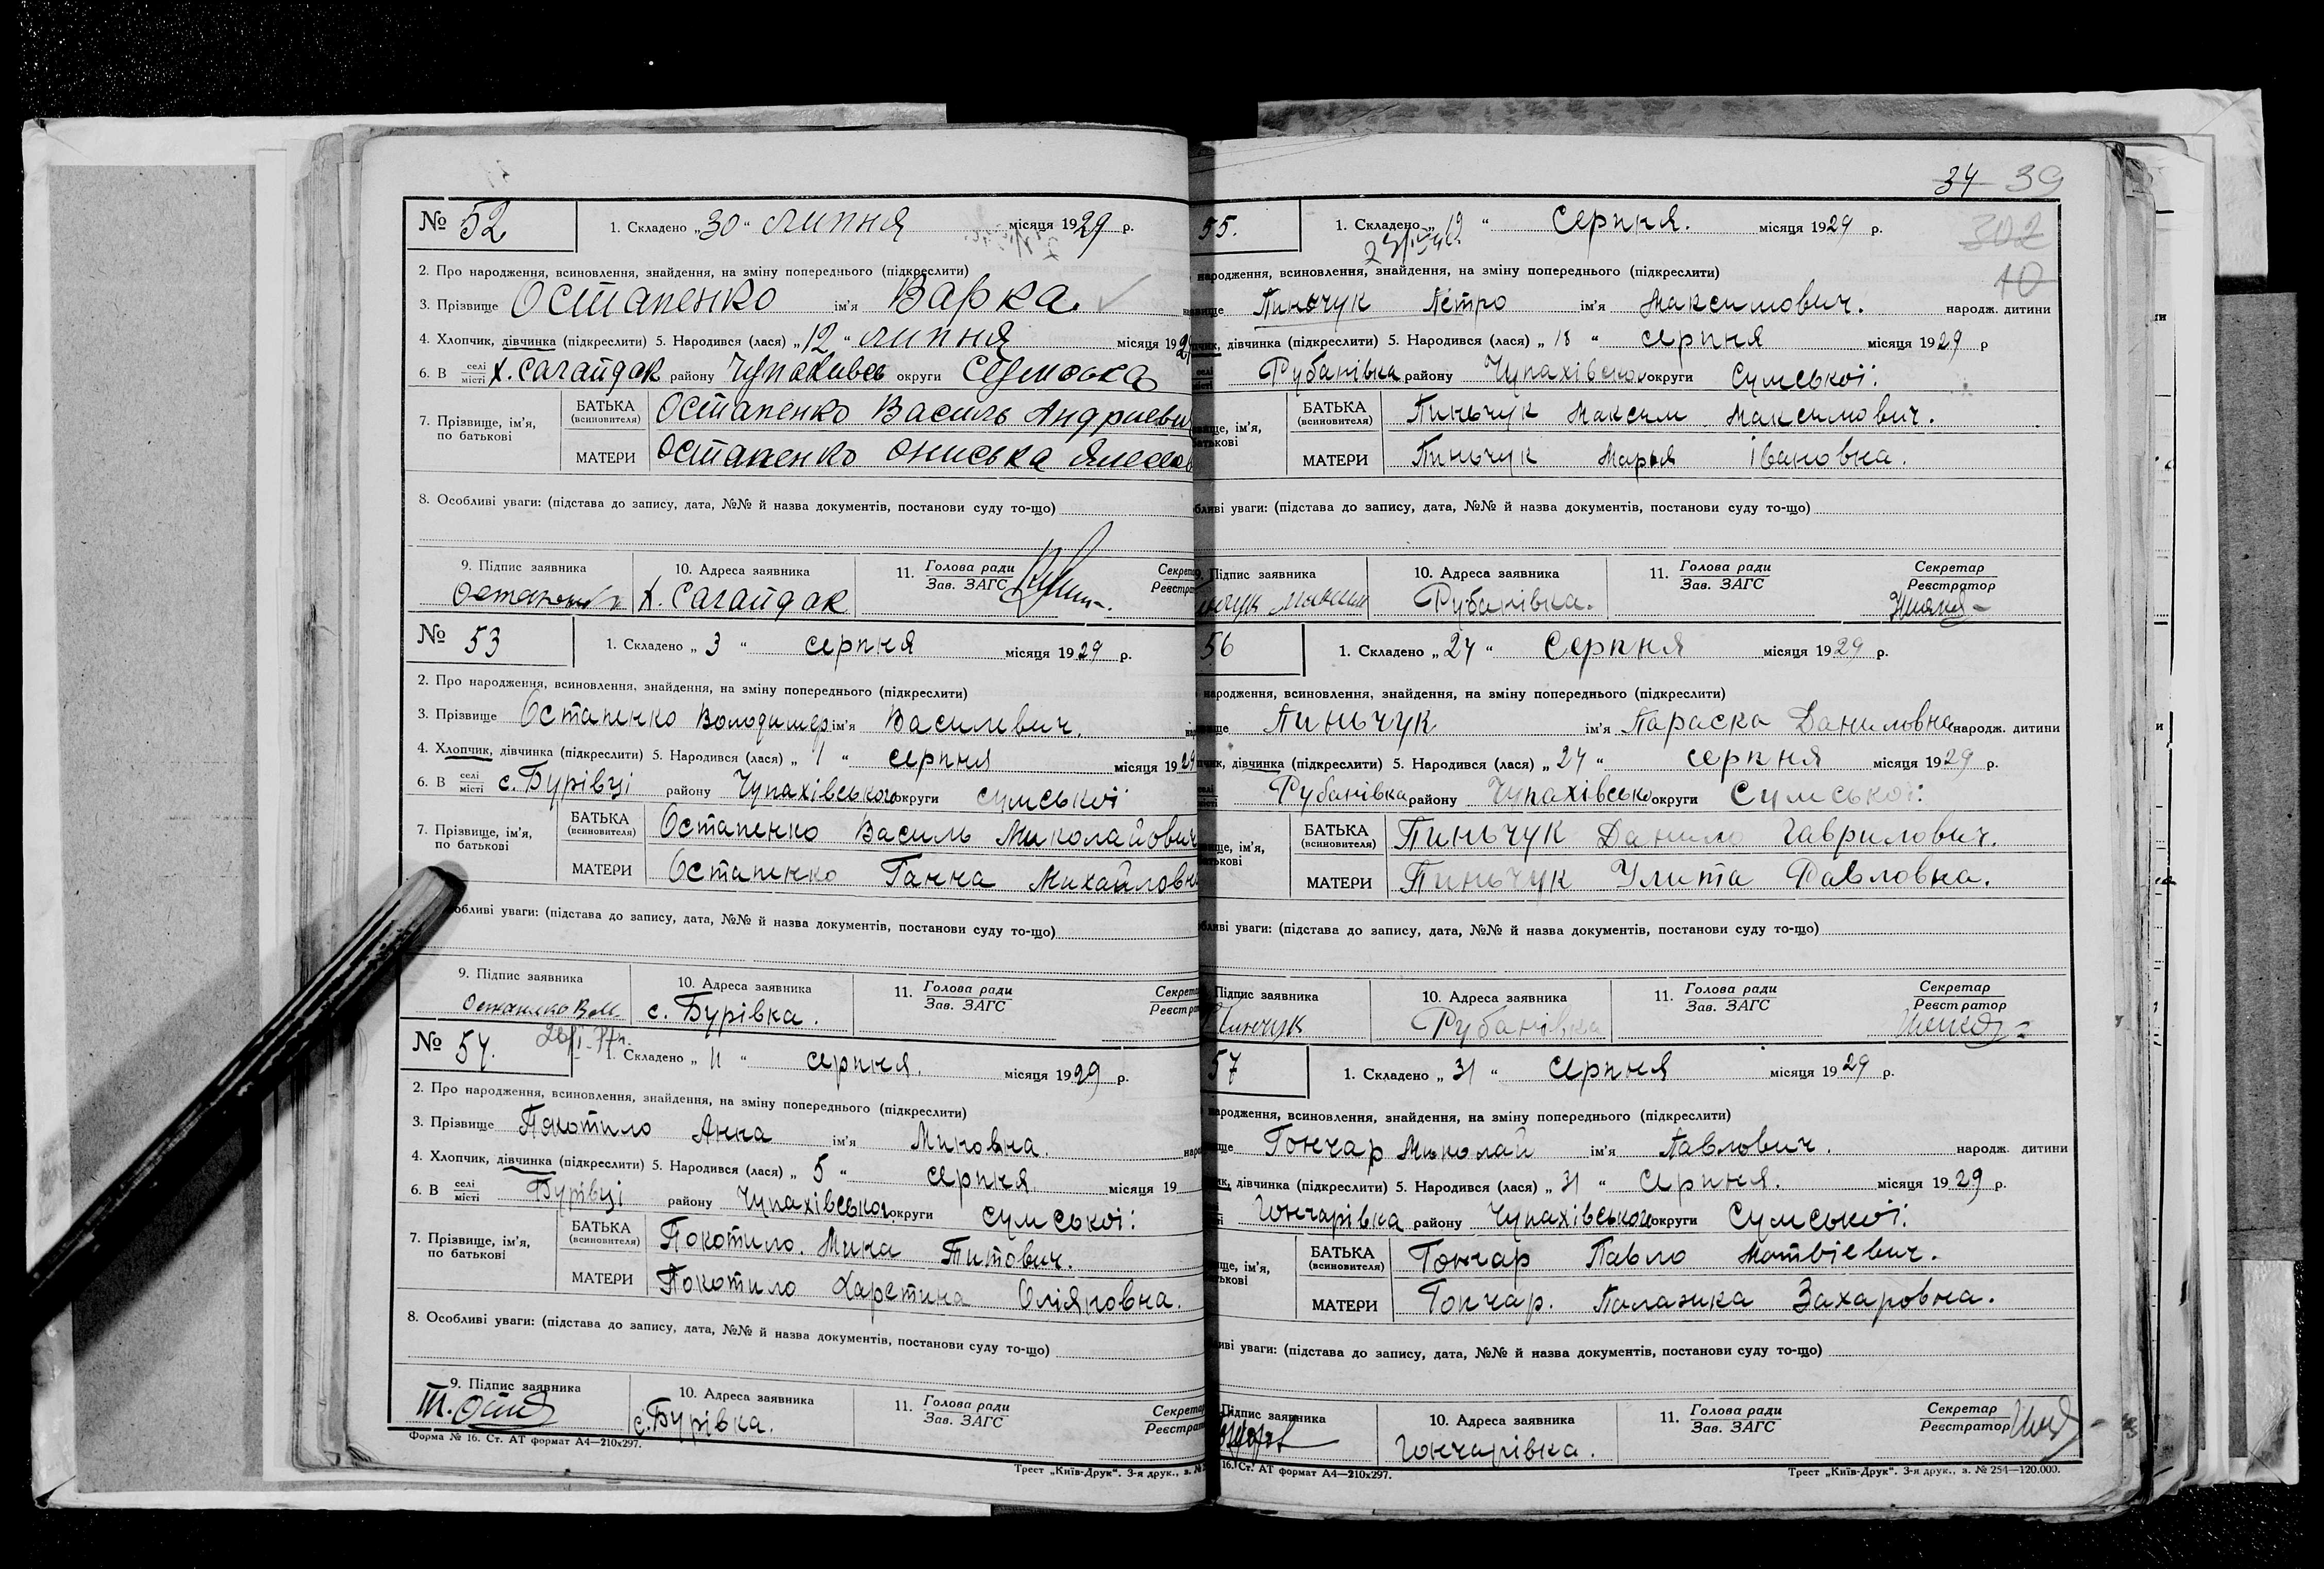 № 52
1. Складено „30“ липня місяця 1929 р.
2. Про народження, всиновлення, знайдення, на зміну попереднього (підкреслити)
3. Прізвище Остапенко ім'я Варка.
4. Хлопчик, дівчинка (підкреслити) 5. Народився (лася) „12“ липня місяця 192
6. В селі місті х. Сагайдак району округи
7. Прізвище, ім'я, по батькові
БАТЬКА (всиновителя) Остапенко Василь
МАТЕРИ Остапенко Ониська
8. Особливі уваги: (підстава до запису, дата, №№ й назва документів, постанови суду то-що)
9. Підпис заявника 10. Адреса заявника 11. Голова ради Зав. ЗАГС
х. Сагайдак
№ 53
1. Складено „3“ серпня місяця 1929 р.
2. Про народження, всиновлення, знайдення, на зміну попереднього (підкреслити)
3. Прізвище Остапенко Володимер ім'я Василевич.
4. Хлопчик, дівчинка (підкреслити) 5. Народився (лася) „1“ серпня місяця 1929
6. В селі місті с. Бурівці району Чупахівського округи сумської
7. Прізвище, ім'я, по батькові
БАТЬКА (всиновителя) Остапенко Василь Миколайович
МАТЕРИ Остапенко Ганна Михайловн
обливі уваги: (підстава до запису, дата, №№ й назва документів, постанови суду то-що)
9. Підпис заявника 10. Адреса заявника 11. Голова ради Зав. ЗАГС
Остапенко В.М. с. Бурівка.
№ 54.
1. Складено „11“ серпня. місяця 1929 р.
2. Про народження, всиновлення, знайдення, на зміну попереднього (підкреслити)
3. Прізвище Покотило Анна ім'я Миновна.
4. Хлопчик, дівчинка (підкреслити) 5. Народився (лася) „5“ серпня місяця 19
6. В селі місті Бурівці району Чупахівського округи сумської
7. Прізвище, ім'я, по батькові
БАТЬКА (всиновителя) Покотило. Мина Титович.
МАТЕРИ Покотило Харетина
8. Особливі уваги: (підстава до запису, дата, №№ й назва документів, постанови суду то-що)
9. Підпис заявника 10. Адреса заявника 11. Голова ради Зав. ЗАГС
с. Бурівка.
Форма № 16. Ст. АТ формат А4—210х297.
Трест „Київ-Друк“. 3-я друк., з. №
34 39
55.
1. Складено „19“ Серпня. місяця 1929 р.
302
10
народження, всиновлення, знайдення, на зміну попереднього (підкреслити)
Пиньчук Пётро ім'я Максимович. народж. дитини
дівчинка (підкреслити) 5. Народився (лася) „18“ серпня місяця 1929 р
Рубанівка району округи Сумської.
БАТЬКА (всиновителя) Пиньчук Максим Максимович.
МАТЕРИ Пиньчук Марья Івановна.
уваги: (підстава до запису, дата, №№ й назва документів, постанови суду то-що)
9. Підпис заявника 10. Адреса заявника 11. Голова ради Зав. ЗАГС Секретар Реєстратор
Рубанівка.
56
1. Складено „24“ Серпня місяця 1929 р.
народження, всиновлення, знайдення, на зміну попереднього (підкреслити)
Пиньчук ім'я Параска Даниловна народж. дитини
дівчинка (підкреслити) 5. Народився (лася) „24“ серпня місяця 1929 р.
Рубанівка району Чупахівсько округи Сумської.
БАТЬКА (всиновителя) Пиньчук Данило Гаврилович.
МАТЕРИ Пиньчук Улита Павловна.
уваги: (підстава до запису, дата, №№ й назва документів, постанови суду то-що)
Підпис заявника 10. Адреса заявника 11. Голова ради Зав. ЗАГС Секретар Реєстратор
Рубанівка
57
1. Складено „31“ серпня місяця 1929 р.
народження, всиновлення, знайдення, на зміну попереднього (підкреслити)
Гончар Миколай ім'я Павлович. народж. дитини
дівчинка (підкреслити) 5. Народився (лася) „31“ Серпня. місяця 1929 р.
Гончарівка району Чупахівського округи Сумської.
БАТЬКА (всиновителя) Гончар Павло Матвієвич.
МАТЕРИ Гончар. Палазика Захаровна.
уваги: (підстава до запису, дата, №№ й назва документів, постанови суду то-що)
Підпис заявника 10. Адреса заявника 11. Голова ради Зав. ЗАГС Секретар Реєстратор
Гончарівка.
16. Ст. АТ формат А4—210х297.
Трест „Київ-Друк“. 3-я друк., з. № 254—120.000.